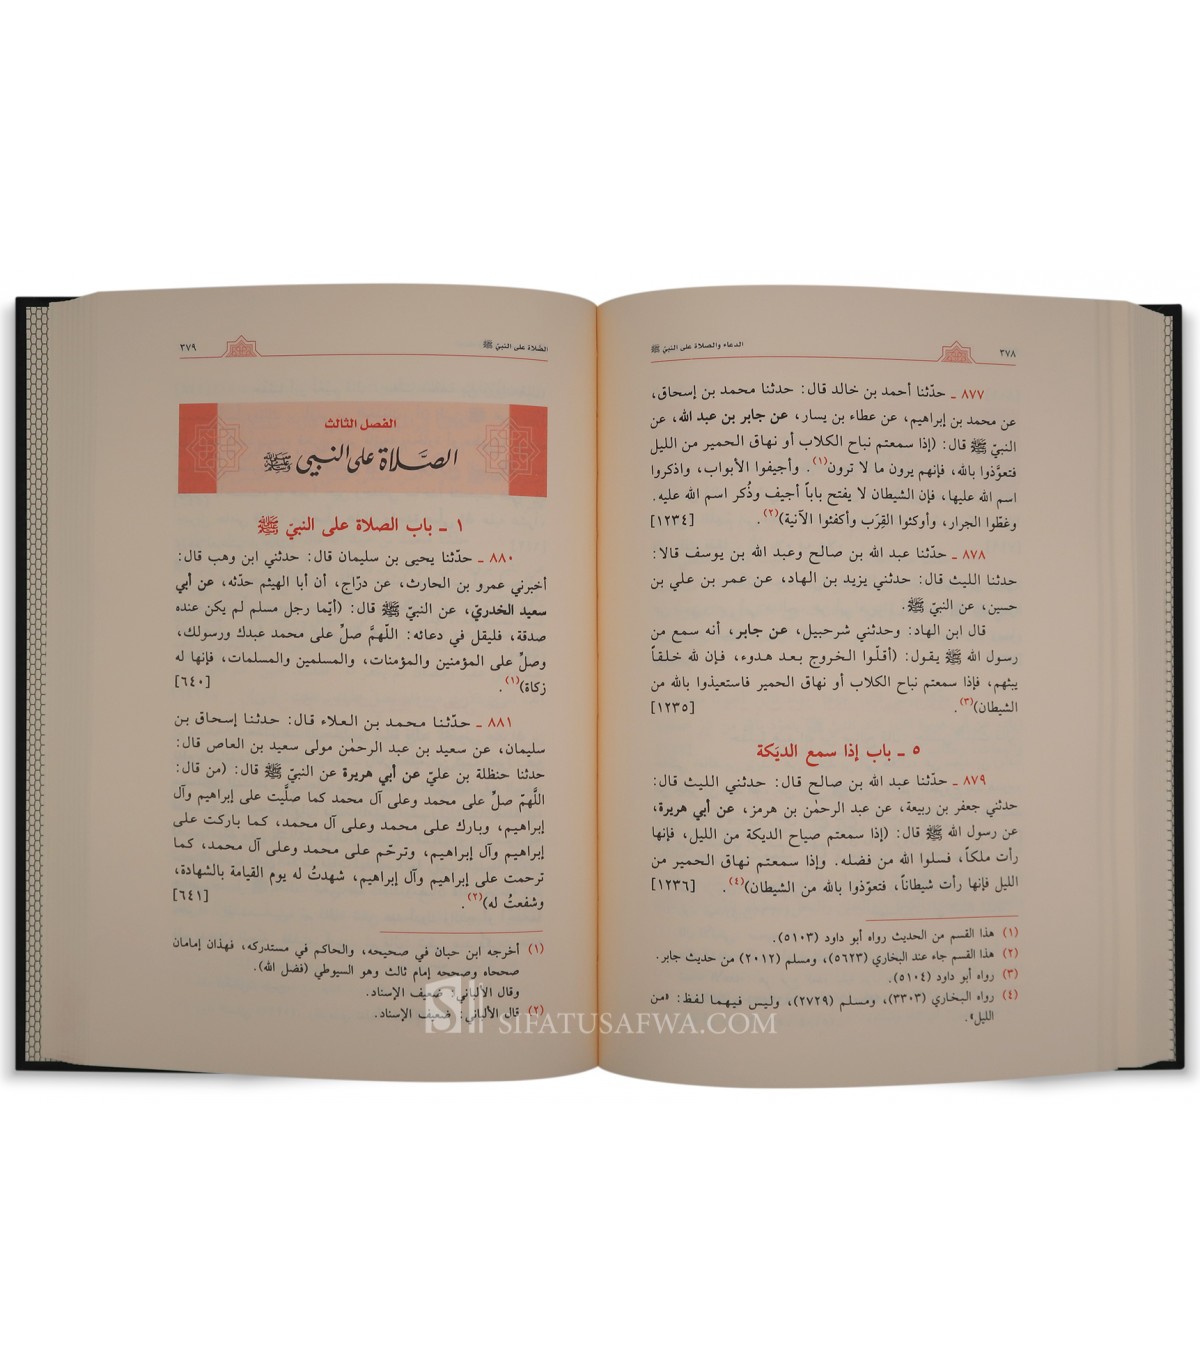 ٣٧٨
الدعاء والصلاة على النبيّ ﷺ
٨٧٧ ـ حدّثنا أحمد بن خالد قال: حدثنا محمد بن إسحاق،
عن محمد بن إبراهيم، عن عطاء بن يسار، عن جابر بن عبد الله، عن
النبيّ ﷺ قال: (إذا سمعتم نباح الكلاب أو نهاق الحمير من الليل
فتعوَّذوا بالله، فإنهم يرون ما لا ترون(١). وأجيفوا الأبواب، واذكروا
اسم الله عليها، فإن الشيطان لا يفتح باباً أجيف وذُكر اسم الله عليه.
وغطّوا الجرار، وأوكئوا القِرَب وأكفئوا الآنية)(٢). [١٢٣٤]
٨٧٨ ـ حدّثنا عبد الله بن صالح وعبد الله بن يوسف قالا:
حدثنا الليث قال: حدثني يزيد بن الهاد، عن عمر بن علي بن
حسين، عن النبيّ ﷺ.
قال ابن الهاد: وحدثني شرحبيل، عن جابر، أنه سمع من
رسول الله ﷺ يقول: (أقلّوا الخروج بعد هدوء، فإن لله خلقاً
يبثهم، فإذا سمعتم نباح الكلاب أو نهاق الحمير فاستعيذوا بالله من
الشيطان)(٣). [١٢٣٥]
٥ ـ باب إذا سمع الديَكة
٨٧٩ ـ حدّثنا عبد الله بن صالح قال: حدثني الليث قال:
حدثني جعفر بن ربيعة، عن عبد الرحمٰن بن هرمز، عن أبي هريرة،
عن رسول الله ﷺ قال: (إذا سمعتم صياح الديكة من الليل، فإنها
رأت ملكاً، فسلوا الله من فضله. وإذا سمعتم نهاق الحمير من
الليل فإنها رأت شيطاناً، فتعوّذوا بالله من الشيطان)(٤). [١٢٣٦]
(١) هذا القسم من الحديث رواه أبو داود (٥١٠٣).
(٢) هذا القسم جاء عند البخاري (٥٦٢٣)، ومسلم (٢٠١٢) من حديث جابر.
(٣) رواه أبو داود (٥١٠٤).
(٤) رواه البخاري (٣٣٠٣)، ومسلم (٢٧٢٩)، وليس فيهما لفظ: «من
الليل».
الصّلاة على النبيّ ﷺ
٣٧٩
الفصل الثالث
الصَّلاة على النبي ﷺ
١ ـ باب الصلاة على النبيّ ﷺ
٨٨٠ ـ حدّثنا يحيى بن سليمان قال: حدثني ابن وهب قال:
أخبرني عمرو بن الحارث، عن درّاج، أن أبا الهيثم حدّثه، عن أبي
سعيد الخدريّ، عن النبيّ ﷺ قال: (أيّما رجل مسلم لم يكن عنده
صدقة، فليقل في دعائه: اللّهمَّ صلِّ على محمد عبدك ورسولك،
وصلِّ على المؤمنين والمؤمنات، والمسلمين والمسلمات، فإنها له
زكاة)(١). [٦٤٠]
٨٨١ ـ حدّثنا محمد بن العلاء قال: حدثنا إسحاق بن
سليمان، عن سعيد بن عبد الرحمٰن مولى سعيد بن العاص قال:
حدثنا حنظلة بن عليّ عن أبي هريرة عن النبيّ ﷺ قال: (من قال:
اللَّهمّ صلِّ على محمد وعلى آل محمد كما صلَّيت على إبراهيم وآل
إبراهيم، وبارك على محمد وعلى آل محمد، كما باركت على
إبراهيم وآل إبراهيم، وترحّم على محمد وعلى آل محمد، كما
ترحمت على إبراهيم وآل إبراهيم، شهدتُ له يوم القيامة بالشهادة،
وشفعتُ له)(٢). [٦٤١]
(١) أخرجه ابن حبان في صحيحه، والحاكم في مستدركه، فهذان إمامان
صححاه وصححه إمام ثالث وهو السيوطي (فضل الله).
وقال الألباني: ضعيف الإسناد.
(٢) قال الألباني: ضعيف الإسناد.
SIFATUSAFWA.COM